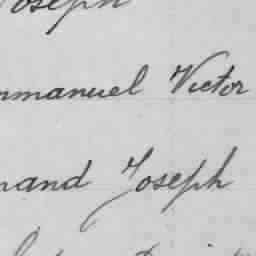 Joseph
mmanuel Victor
nand Joseph